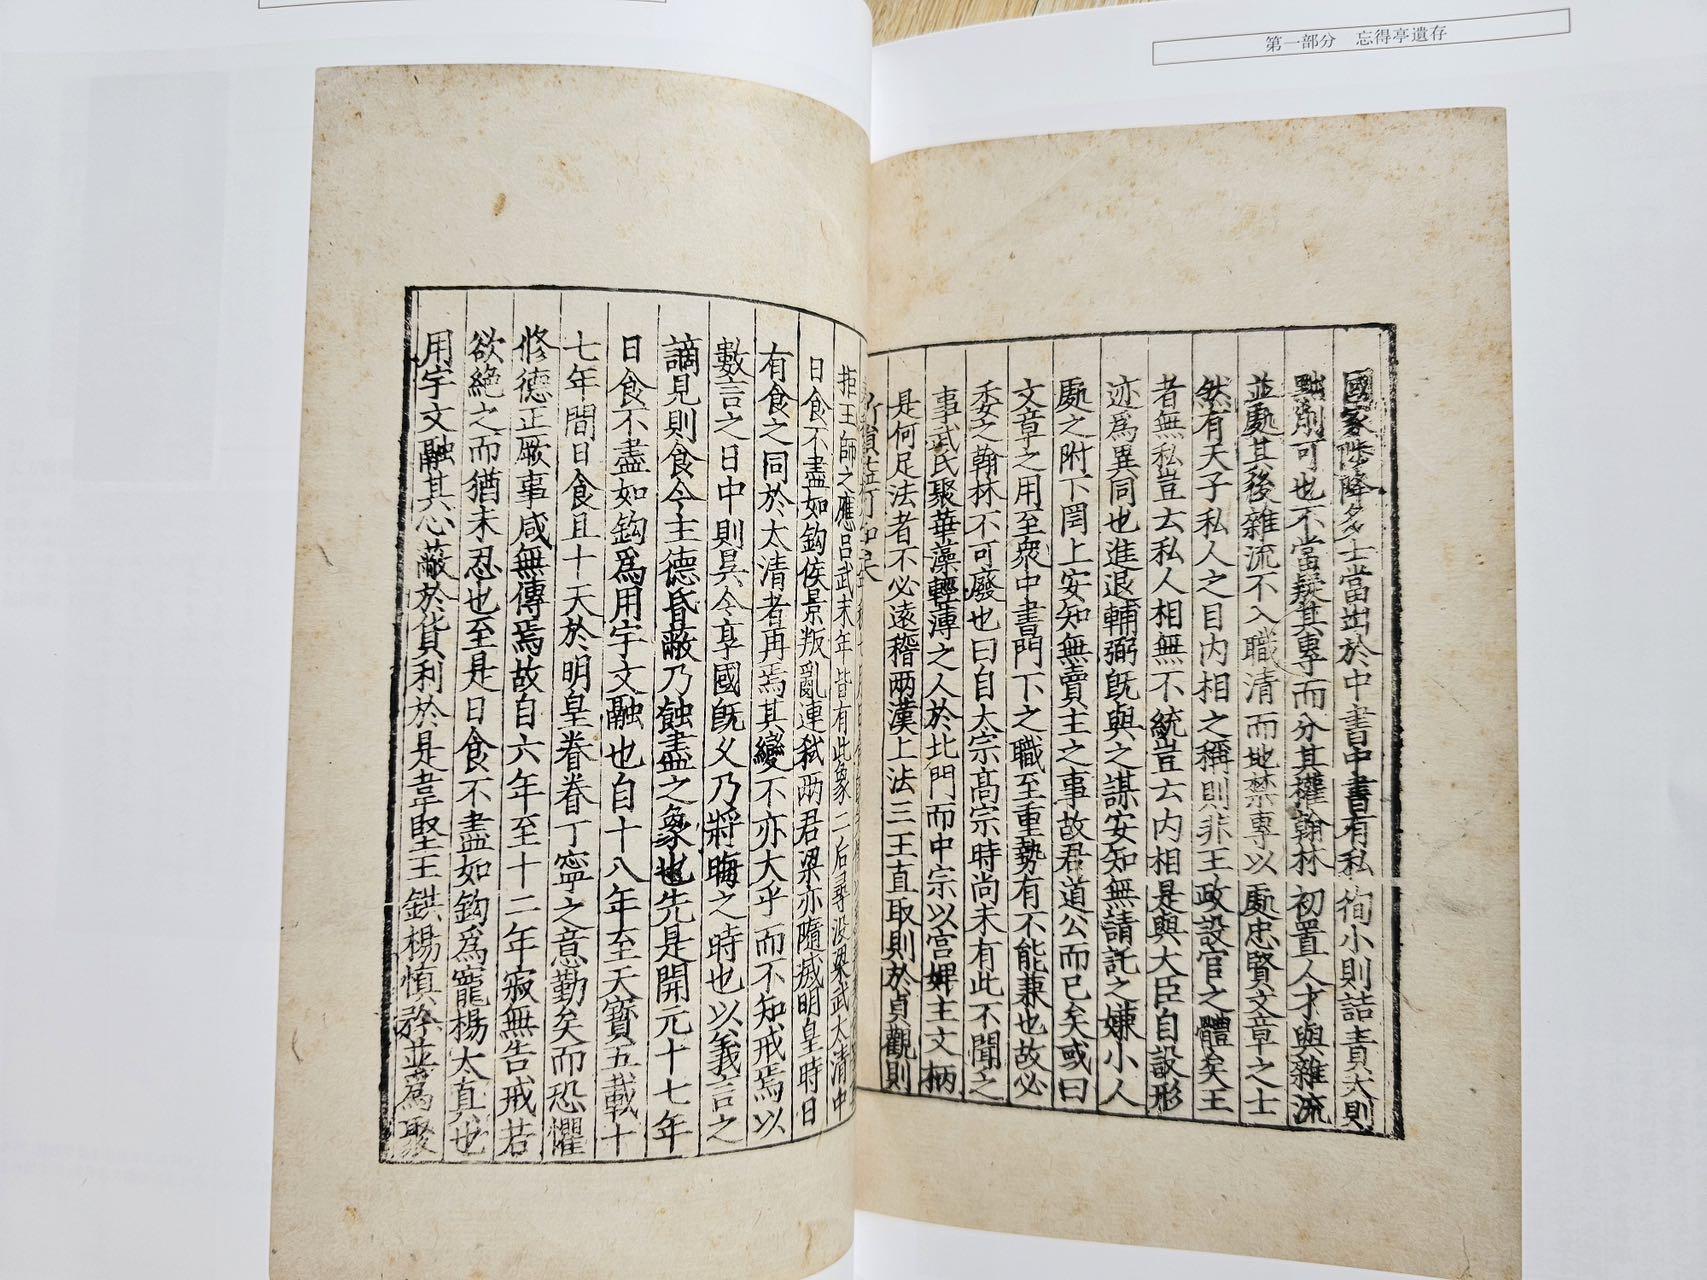 第一部分　忘得亭遺存
國家陟降多士當出於中書中書有私徇小則詰責大則
黜削可也不當疑其專而分其權翰林初置人才與雜流
並處其後雜流不入職清而地禁專以處忠賢文章之士
然有天子私人之目內相之稱則非王政設官之體矣王
者無私豈厶私人相無不統豈厶內相是與大臣自設形
迹為異同也進退輔弼旣與之謀安知無請託之嫌小人
處之附下罔上安知無賣主之事故君道公而已矣或曰
文章之用至衆中書門下之職至重勢有不能兼也故必
委之翰林不可廢也曰自太宗高宗時尚未有此不聞之
事武氏聚華藻輕薄之人於北門而中宗以宮婢主文柄
是何足法者不必遠稽兩漢上法三王直取則於貞觀則
拒王師之應呂武末年皆有此象二后尋没梁武太清中
日食不盡如鈎侯景叛亂連弑兩君梁亦隨滅明皇時日
有食之同於太清者再焉其變不亦大乎而不知戒焉以
數言之日中則昃今享國旣久乃將晦之時也以義言之
謫見則食今主德昏蔽乃蝕盡之象也先是開元十七年
日食不盡如鈎爲用宇文融也自十八年至天寶五載十
七年間日食且十天於明皇眷眷丁寧之意勤矣而恐懼
修德正厥事咸無傳焉故自六年至十二年寂無告戒若
欲絶之而猶未忍也至是日食不盡如鈎爲寵楊太真也
用宇文融其心蔽於貨利於是韋堅王鉷楊慎矜並爲聚